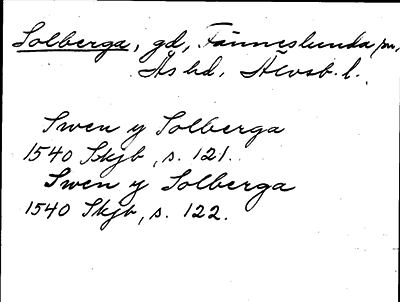 Solberga, gd, Fänneslunda sn,
Ås hd, Älvsb. l.
Swen y Solberga
1540 Skjb, s. 121.
Swen y Solberga
1540 Skjb, s. 122.